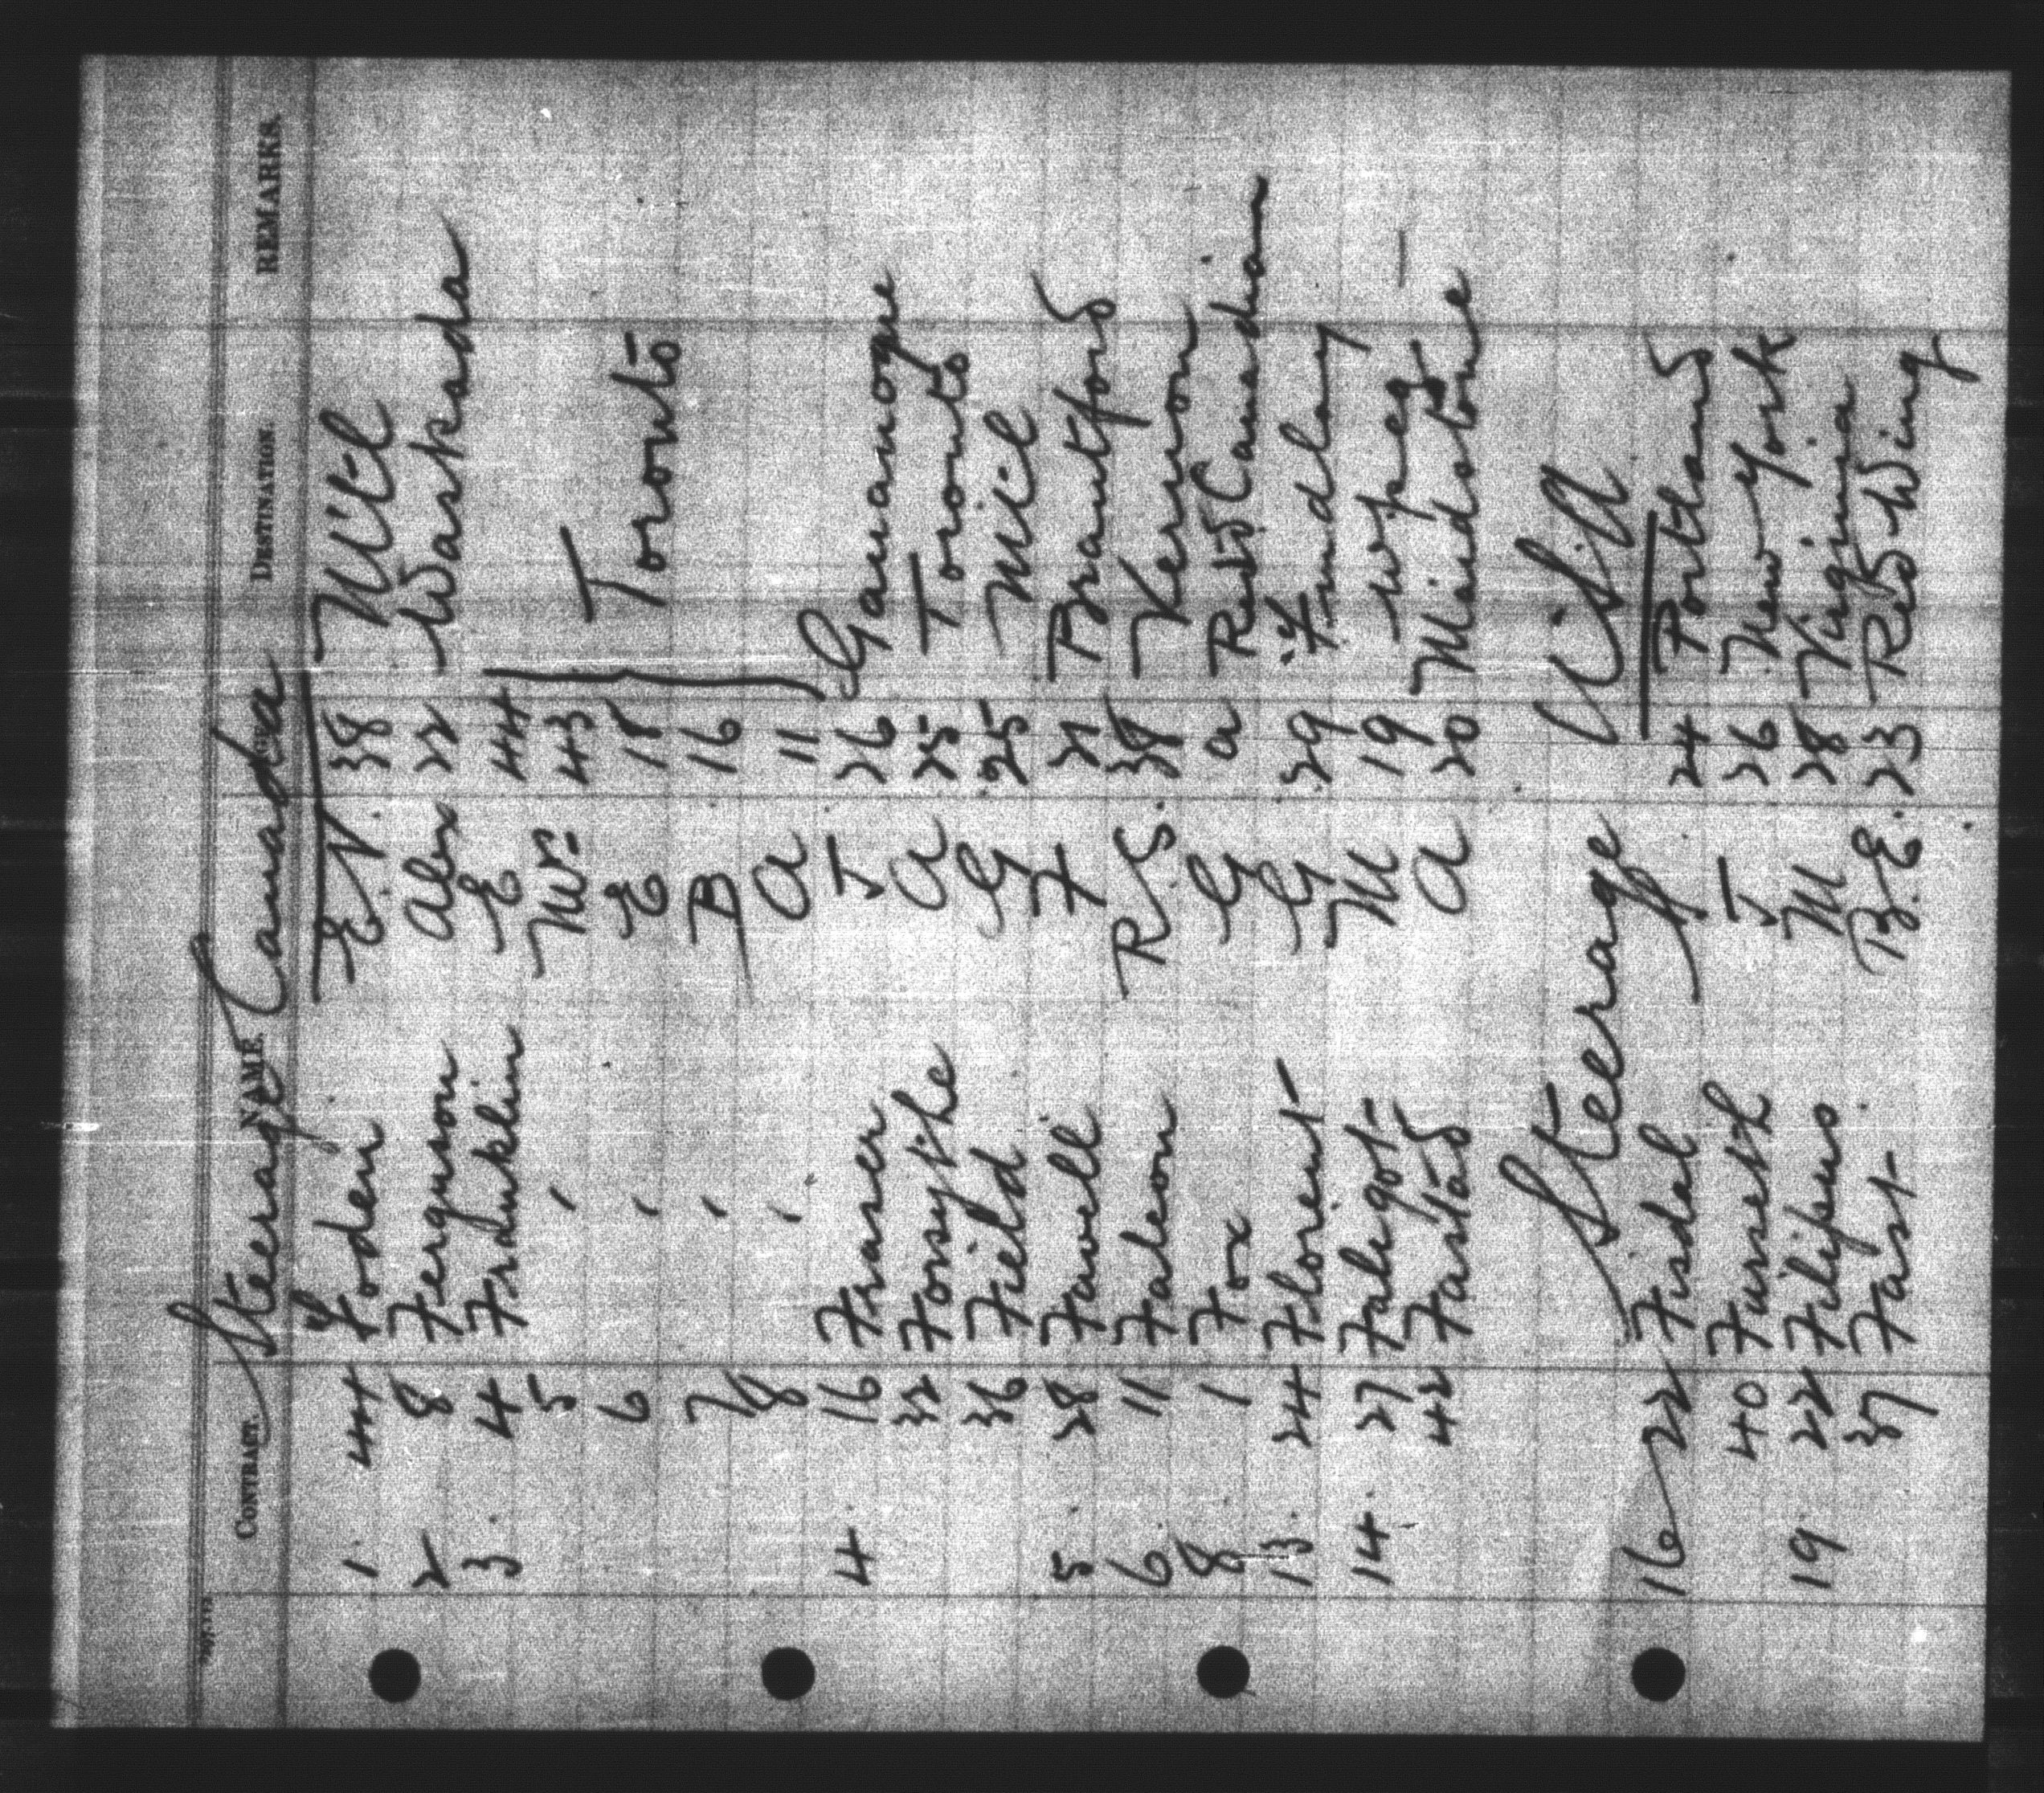 CONTRACT. NAME. AGE DESTINATION. REMARKS.
Steerage Canada
1. 44 Foden E.N. 38 Mtl
2 8 Ferguson Alex 22 Waskada
3. 4 Franklin E 44
5 " Mrs 43
6 " E 18 Toronto
7 " B 16
8 " A 11
4. 16 Fraser J 26 Gananoque
32 Forsythe A 25 Toronto
36 Field G 25 Mtl
5. 28 Fawell F 21 Brantford
6 11 Faleon R S. 38 Vernon
8 1 Fox G a Red Canadian
13. 24 Florent G 29 Findlay
14. 27 Faligot M 19 Wpeg —
42 Farstad A 20 Maidstone
Steerage U.S.A
16 22 Fisdal 24 Portland
40 Furseth J 26 New York
19 22 Filipus M 28 Virginia
37 Fast B.E. 23 Red Wing